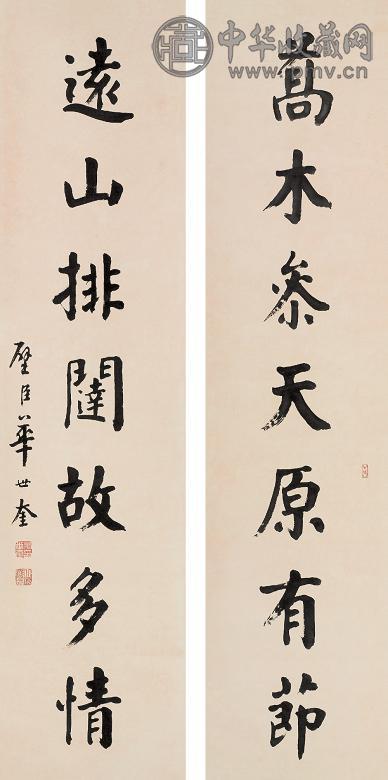 中华收藏网
www.pmv.cn
喬木叅天原有節
遠山排闥故多情
璧臣華世奎